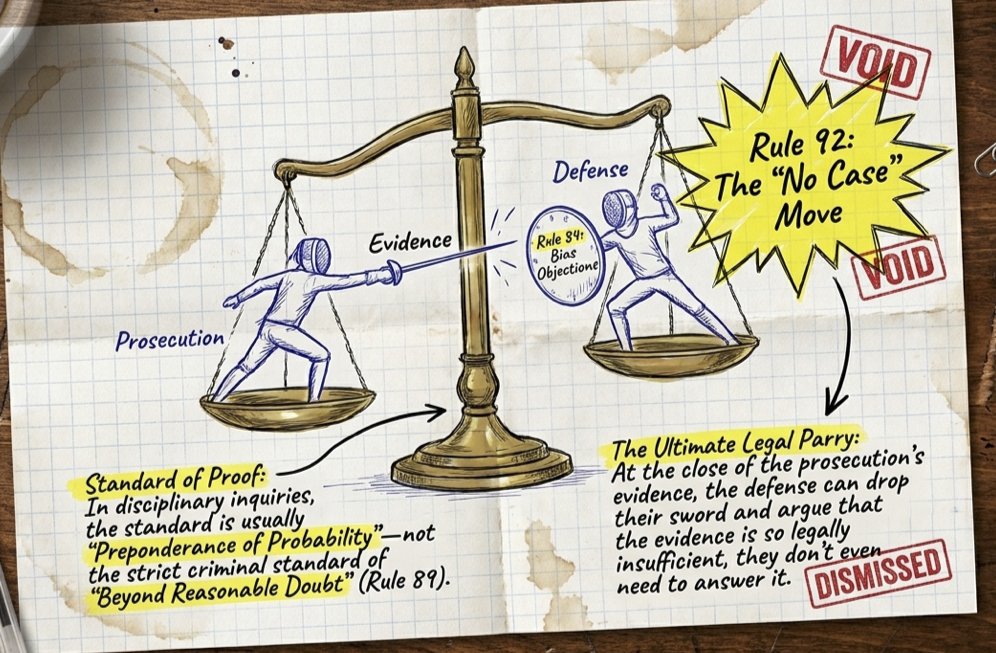 VOID
Rule 92:
The "No Case"
Move
VOID
Defense
Evidence
Rule 84:
Bias
Objectione
Prosecution
Standard of Proof:
In disciplinary inquiries,
the standard is usually
"Preponderance of Probability"—not
the strict criminal standard of
"Beyond Reasonable Doubt" (Rule 89).
The Ultimate Legal Parry:
At the close of the prosecution's
evidence, the defense can drop
their sword and argue that
the evidence is so legally
insufficient, they don't even
need to answer it.
DISMISSED